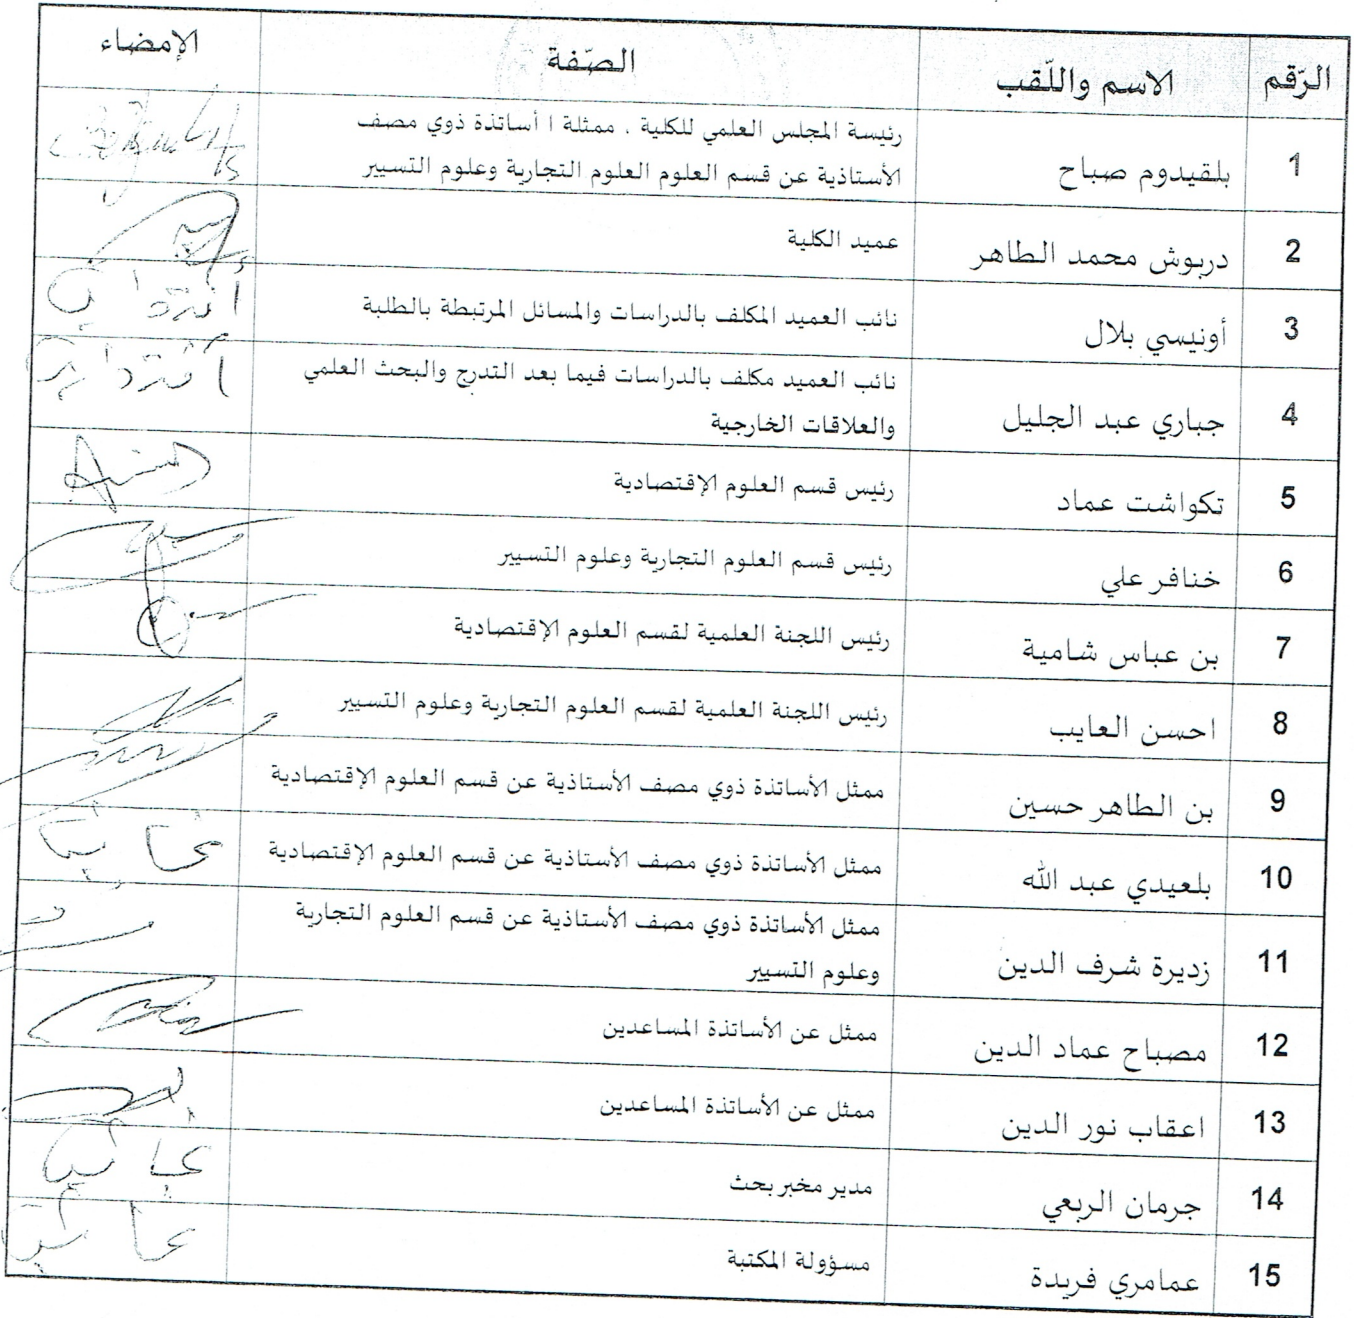 الرّقم الاسم واللّقب الصّفة الإمضاء
1 بلقيدوم صباح رئيسة المجلس العلمي للكلية . ممثلة ا أساتذة ذوي مصف
الأستاذية عن قسم العلوم العلوم التجارية وعلوم التسيير
2 دربوش محمد الطاهر عميد الكلية
3 أونيسي بلال نائب العميد المكلف بالدراسات والمسائل المرتبطة بالطلبة
4 جباري عبد الجليل نائب العميد مكلف بالدراسات فيما بعد التدرج والبحث العلمي
والعلاقات الخارجية
5 تكواشت عماد رئيس قسم العلوم الإقتصادية
6 خنافر علي رئيس قسم العلوم التجارية وعلوم التسيير
7 بن عباس شامية رئيس اللجنة العلمية لقسم العلوم الإقتصادية
8 احسن العايب رئيس اللجنة العلمية لقسم العلوم التجارية وعلوم التسيير
9 بن الطاهر حسين ممثل الأساتذة ذوي مصف الأستاذية عن قسم العلوم الإقتصادية
10 بلعيدي عبد الله ممثل الأساتذة ذوي مصف الأستاذية عن قسم العلوم الإقتصادية غائب
11 زديرة شرف الدين ممثل الأساتذة ذوي مصف الأستاذية عن قسم العلوم التجارية
وعلوم التسيير
12 مصباح عماد الدين ممثل عن الأساتذة المساعدين
13 اعقاب نور الدين ممثل عن الأساتذة المساعدين
14 جرمان الربعي مدير مخبر بحث غائب
15 عمامري فريدة مسؤولة المكتبة غائبة